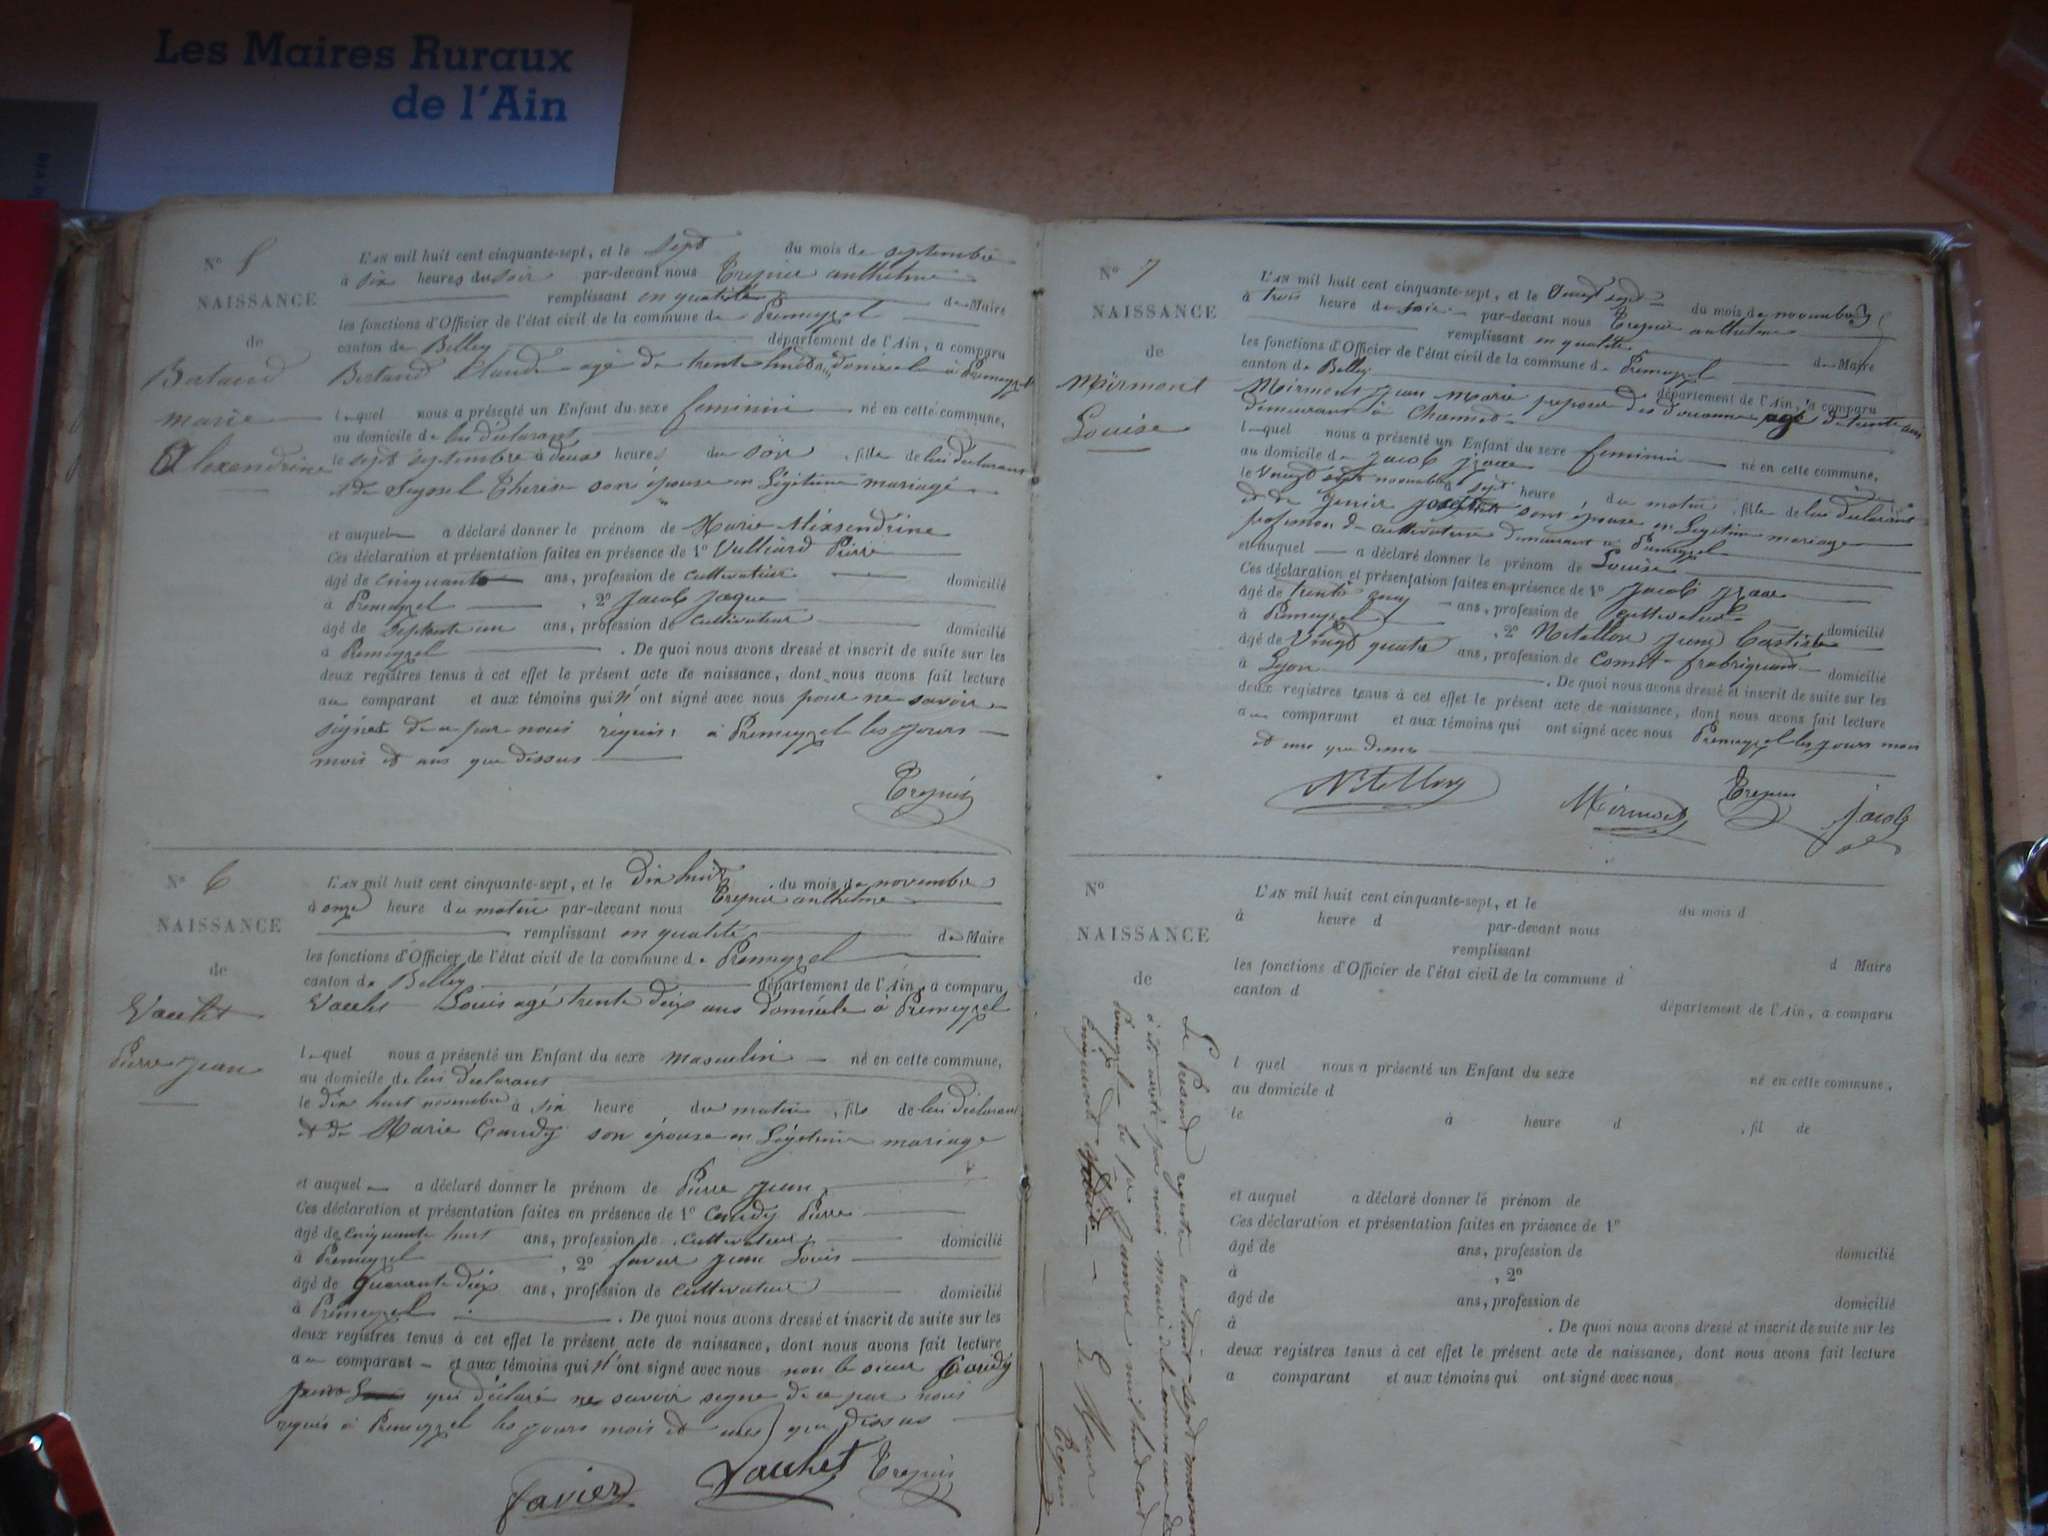 Les Maires Ruraux
de l'Ain
N° 5
NAISSANCE
de
Bertand
marie
Alexendrine
L'AN mil huit cent cinquante-sept, et le sept du mois de septembre
à six heures du soir par-devant nous Trepier anthelme
remplissant en qualité de Maire
les fonctions d'Officier de l'état civil de la commune de Premeyzel
canton de Belley département de l'Ain, a comparu
Bertand Claude agé de trente domicilé à Premeyzel
lequel nous a présenté un Enfant du sexe feminin né en cette commune,
au domicile de lui déclarant
le sept septembre à deux heures du soir, fille de lui déclarant
et de Seyssel Therese son épouse en légitime mariage
et auquel a déclaré donner le prénom de Marie Alexsendrine
Ces déclaration et présentation faites en présence de 1° Vulliard Pierre
âgé de cinquante ans, profession de cultivateur domicilié
à Premeyzel, 2° Jacob Jaque
âgé de septante un ans, profession de cultivateur domicilié
à Premeyzel. De quoi nous avons dressé et inscrit de suite sur les
deux registres tenus à cet effet le présent acte de naissance, dont nous avons fait lecture
au comparant et aux témoins qui n'ont signé avec nous pour ne savoir
signé de ce par nous réquis, à Premeyzel les jours
mois et ans que dessus
Trepier
N° 6
NAISSANCE
de
Vauchet
Pierre Jean
L'AN mil huit cent cinquante-sept, et le dix huit du mois de novembre
à onze heure du matin par-devant nous Trepier anthelme
remplissant en qualité de Maire
les fonctions d'Officier de l'état civil de la commune de Premeyzel
canton de Belley département de l'Ain, a comparu
Vauchet Louis agé trente deux ans domicile à Premeyzel
lequel nous a présenté un Enfant du sexe masculin né en cette commune,
au domicile de lui déclarant
le dix huit novembre à six heure du matin, fils de lui déclarant
et de Marie Caudy son épouse en légitime mariage
et auquel a déclaré donner le prénom de Pierre Jean
Ces déclaration et présentation faites en présence de 1° Caudy Pierre
âgé de cinquante huit ans, profession de cultivateur domicilié
à Premeyzel, 2° favier Jean Louis
âgé de quarante dix ans, profession de cultivateur domicilié
à Premeyzel. De quoi nous avons dressé et inscrit de suite sur les
deux registres tenus à cet effet le présent acte de naissance, dont nous avons fait lecture
au comparant et aux témoins qui n'ont signé avec nous non le sieur Caudy
qui déclaré ne savoir signe de ce par nous
requis à Premeyzel les jours mois et que dessus
favier Vauchet Trepier
N° 7
NAISSANCE
de
Mirmont
Louise
L'AN mil huit cent cinquante-sept, et le vingt sept du mois de novembre
à trois heure de soir par-devant nous Trepier anthelme
remplissant en qualité de Maire
les fonctions d'Officier de l'état civil de la commune de Premeyzel
canton de Belley département de l'Ain, a comparu
Mirmont Jean Marie préposé des douanne agé de trente ans
demeurant à
lequel nous a présenté un Enfant du sexe feminin né en cette commune,
au domicile de Jacob
le vingt sept novembre à sept heure du matin, fille de lui déclarant
et de son épouse en légitime mariage
profession de cultivatrice demeurant à Premeyzel
et auquel a déclaré donner le prénom de Louise
Ces déclaration et présentation faites en présence de 1° Jacob
âgé de trente ans, profession de cultivateur
à Premeyzel domicilié
, 2° Nitellon Jean Batiste
âgé de vingt quatre ans, profession de domicilié
à Lyon. De quoi nous avons dressé et inscrit de suite sur les
deux registres tenus à cet effet le présent acte de naissance, dont nous avons fait lecture
au comparant et aux témoins qui ont signé avec nous Premeyzel les jours mois
et ans que dessus
Nitellon Mirmont Trepier Jacob
N°
NAISSANCE
de
L'AN mil huit cent cinquante-sept, et le du mois d
à heure d par-devant nous
remplissant d Maire
les fonctions d'Officier de l'état civil de la commune d
canton d département de l'Ain, a comparu
l quel nous a présenté un Enfant du sexe né en cette commune,
au domicile d
le à heure d , fil de
et auquel a déclaré donner le prénom de
Ces déclaration et présentation faites en présence de 1°
âgé de ans, profession de domicilié
à , 2°
âgé de ans, profession de domicilié
à . De quoi nous avons dressé et inscrit de suite sur les
deux registres tenus à cet effet le présent acte de naissance, dont nous avons fait lecture
a comparant et aux témoins qui ont signé avec nous
Le Présent registre contenant sept
à été arrêté par nous maire de la commune de
Premeyzel le janvier mil huit cent
cinquante
Le Maire
Trepier